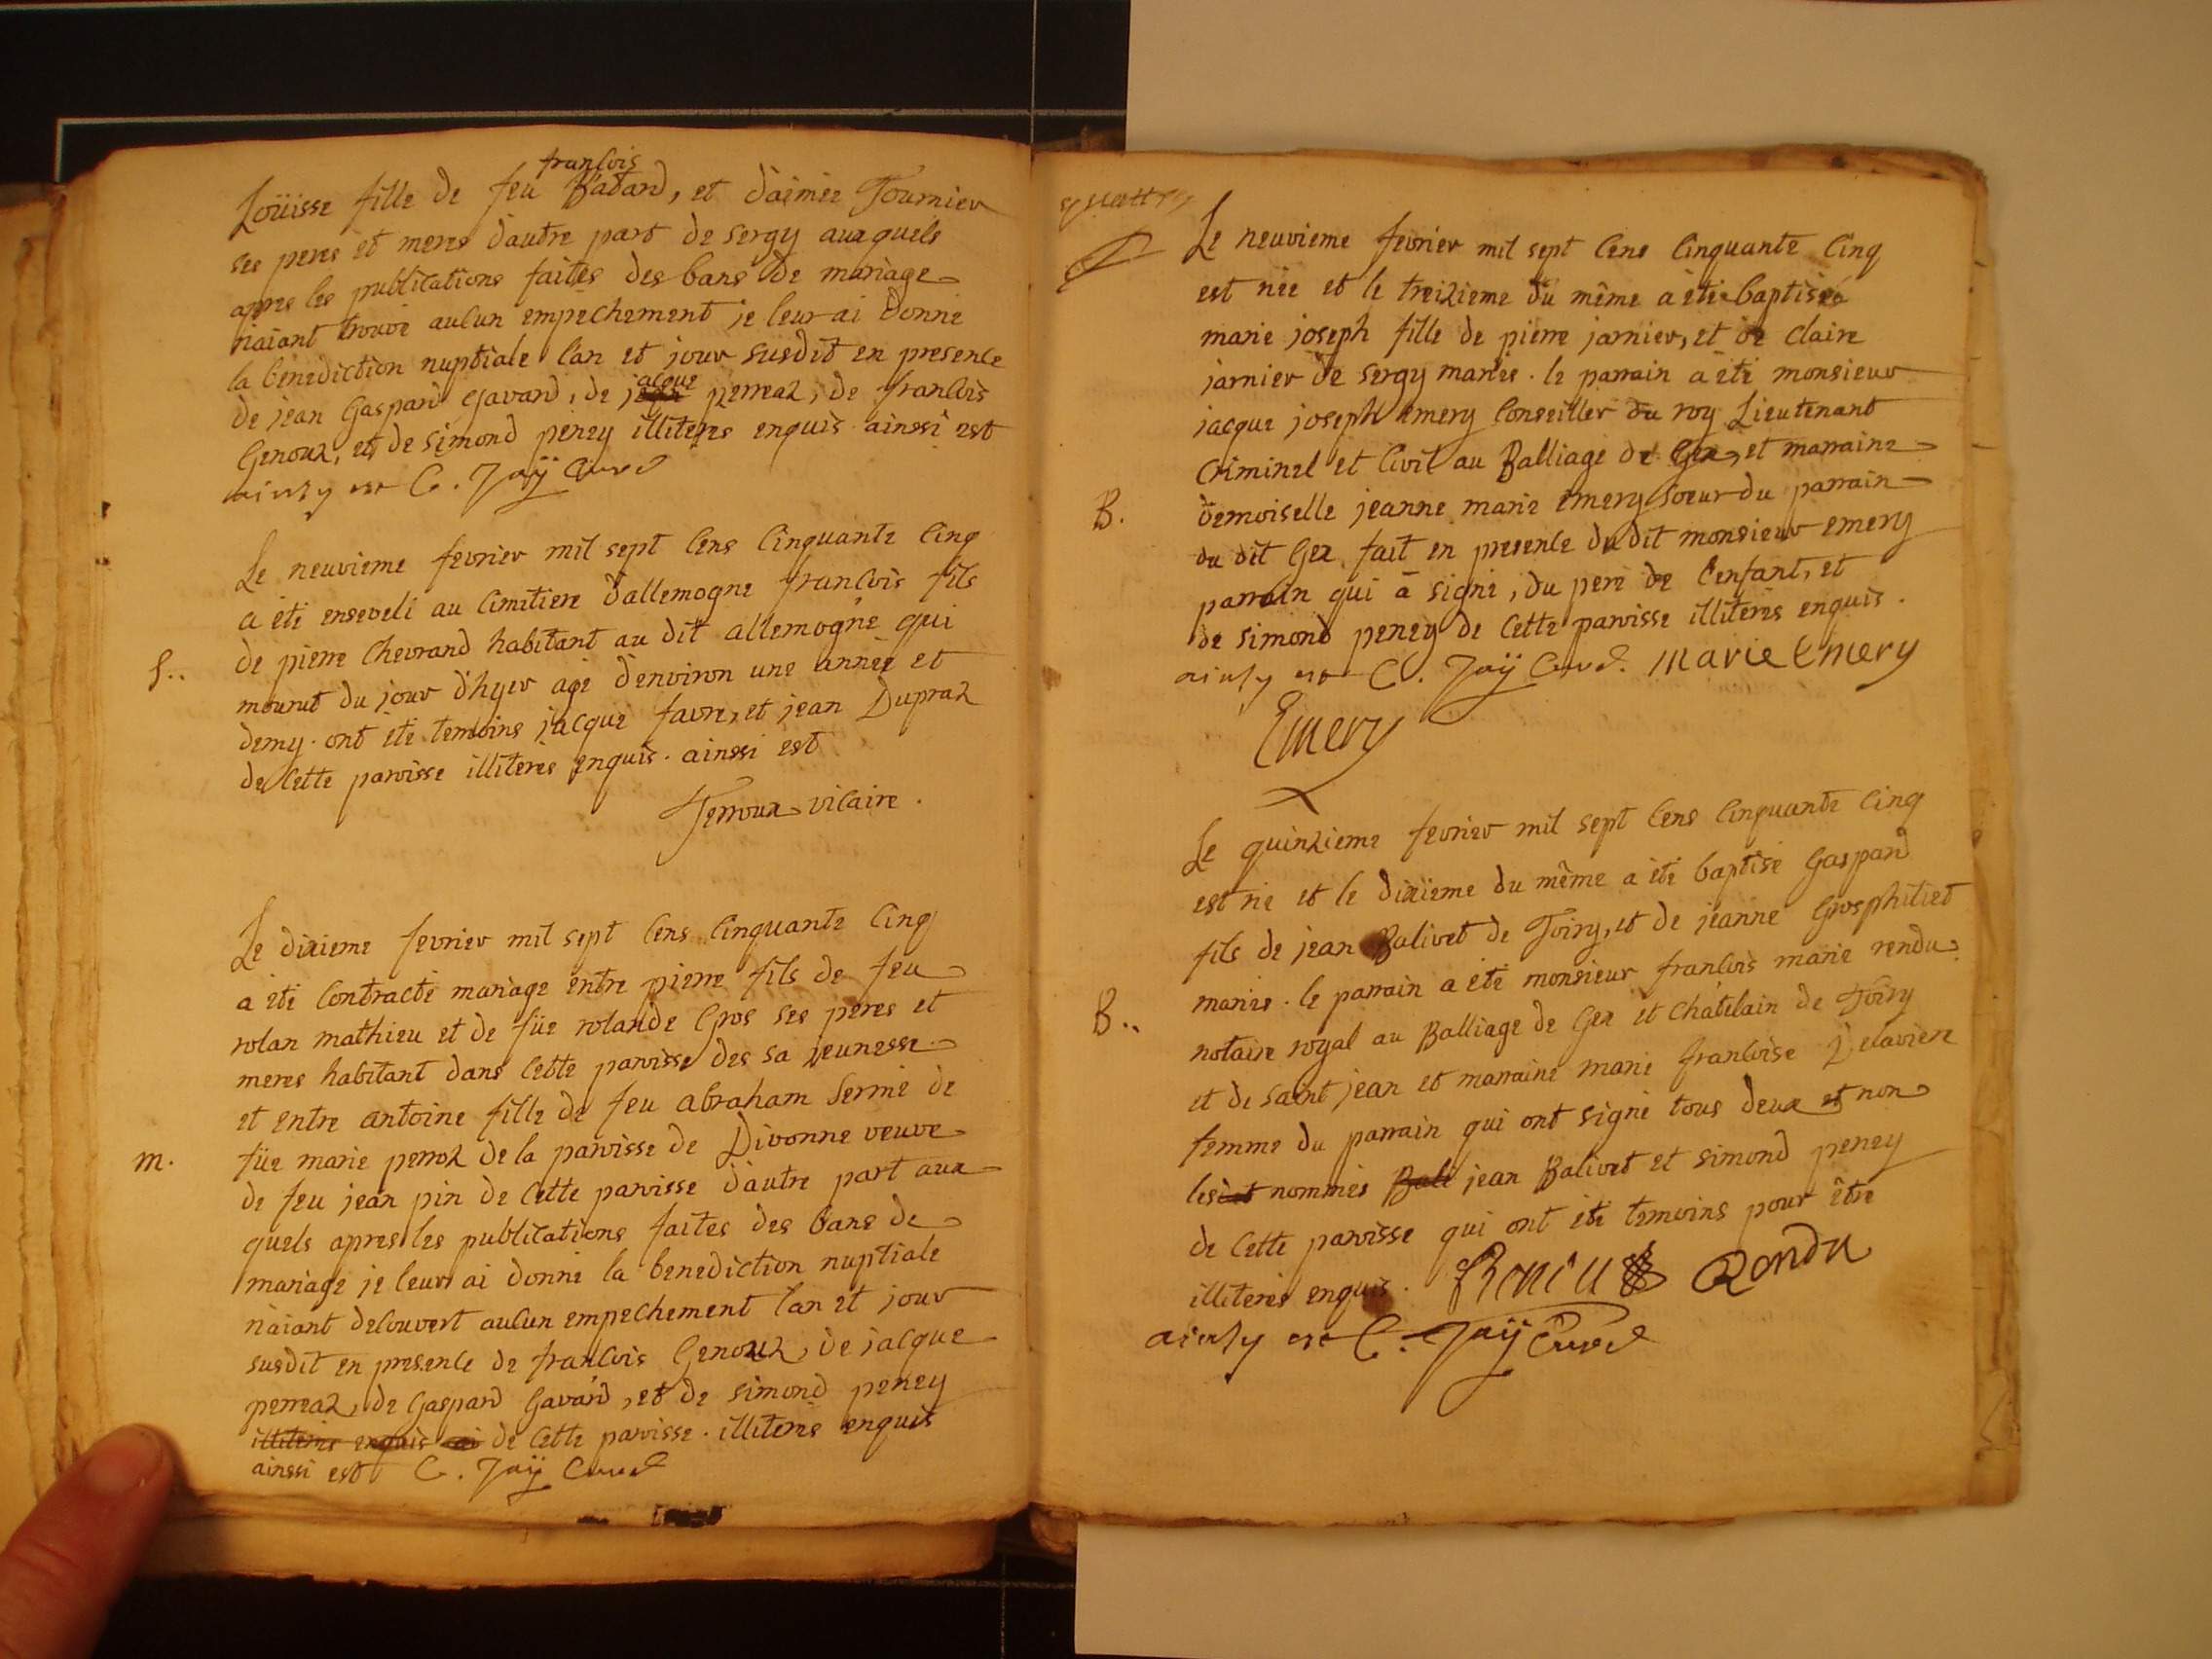 françois
Loüisse fille de feu Batard, et d'aimée Tournier
ses peres et meres d'autre part de sergy auxquels
apres les publications faites des bans de mariage
n'aiant trouvé aucun empechement je leur ai donné
la benediction nuptiale l'an et jour susdit en presence
de jean Gaspard Gavard, de jacque perreaz, de françois
Genoux, et de simond peney illiterés enquis ainssi est
ainsy est C. Jaÿ Curé
Le neuvieme fevrier mil sept cens cinquante cinq
a été enseveli au cimitiere d'allemogne françois fils
de pierre Chevrand habitant au dit allemogne qui
S..
mourut du jour d'hyer agé d'environ une année et
demy. ont été temoins jacque favre, et jean Dupraz
de cette paroisse illiterés enquis. ainssi est
Terroux vicaire.
Le dixieme fevrier mil sept cens cinquante cinq
a été contracté mariage entre pierre fils de feu
rolan mathieu et de füe rolande Gros ses peres et
meres habitant dans cette paroisse des sa jeunesse
et entre antoine fille de feu abraham Sermé de
m.
füe marie perroz de la paroisse de Divonne veuve
de feu jean pin de cette paroisse d'autre part aux
quels apres les publications faites des bans de
mariage je leur ai donné la benediction nuptiale
n'aiant decouvert aucun empechement l'an et jour
susdit en presence de françois Genoux, de jacque
perreaz, de Gaspard Gavard, et de simond peney
illiterés enquis ai de cette paroisse. illiterés enquis
ainssi est C. Jaÿ Curé
Le neuvieme fevrier mil sept cens cinquante cinq
est née et le treizieme du même a été baptisée
marie joseph fille de pierre jarnier, et de claire
jarnier de sergy mariée. le parrain a été monsieur
jacque joseph emery conseiller du roy Lieutenant
Criminel et Civil au Balliage de Gex, et marraine
B.
demoiselle jeanne marie emery soeur du parrain
du dit Gex fait en presence du dit monsieur emery
parrain qui à signé, du pere de l'enfant, et
de simond peney de cette paroisse illiterés enquis.
ainsy est C. Jaÿ Curé. Marie Emery
Emery
Le quinzieme fevrier mil sept cens cinquante cinq
est né et le dixieme du même a été baptisé Gaspard
fils de jean Balivet de Toiry, et de jeanne Grosphiliet
mariés. le parrain a été monsieur françois marie rendu
B..
notaire royal au Balliage de Gex et châtelain de Toiry
et de saint jean et marraine marie françoise Delaviere
femme du parrain qui ont signé tous deux et non
les nommés Bale jean Balivet et simond peney
de cette paroisse qui ont été temoins pour être
illiterés enquis. Rendu Rondu
ainsy est C. Jaÿ Curé